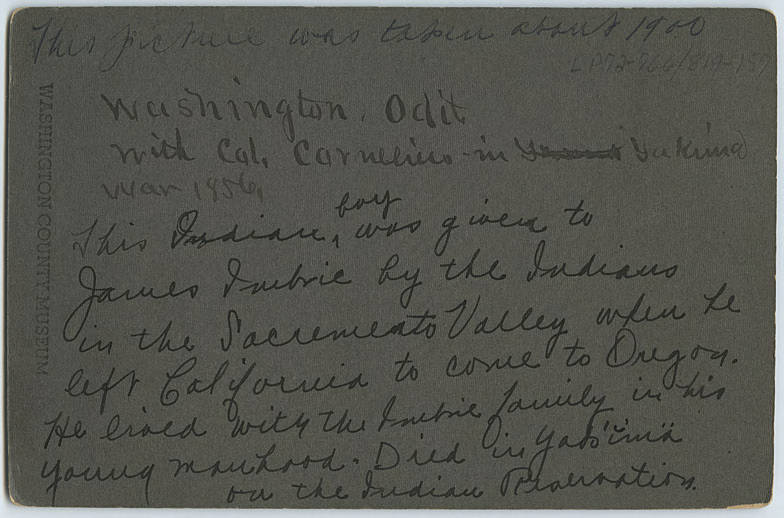 This picture was taken about 1900
LP72-766/819-157
Washington, Odit
with Col. Cornelius in Yakima
War 1856,
boy
This Indian, was given to
James Imbrie by the Indians
in the Sacremento Valley when he
left California to come to Oregon.
He lived with the Imbrie family in his
young manhood. Died in
on the Indian Reservation.
WASHINGTON COUNTY MUSEUM